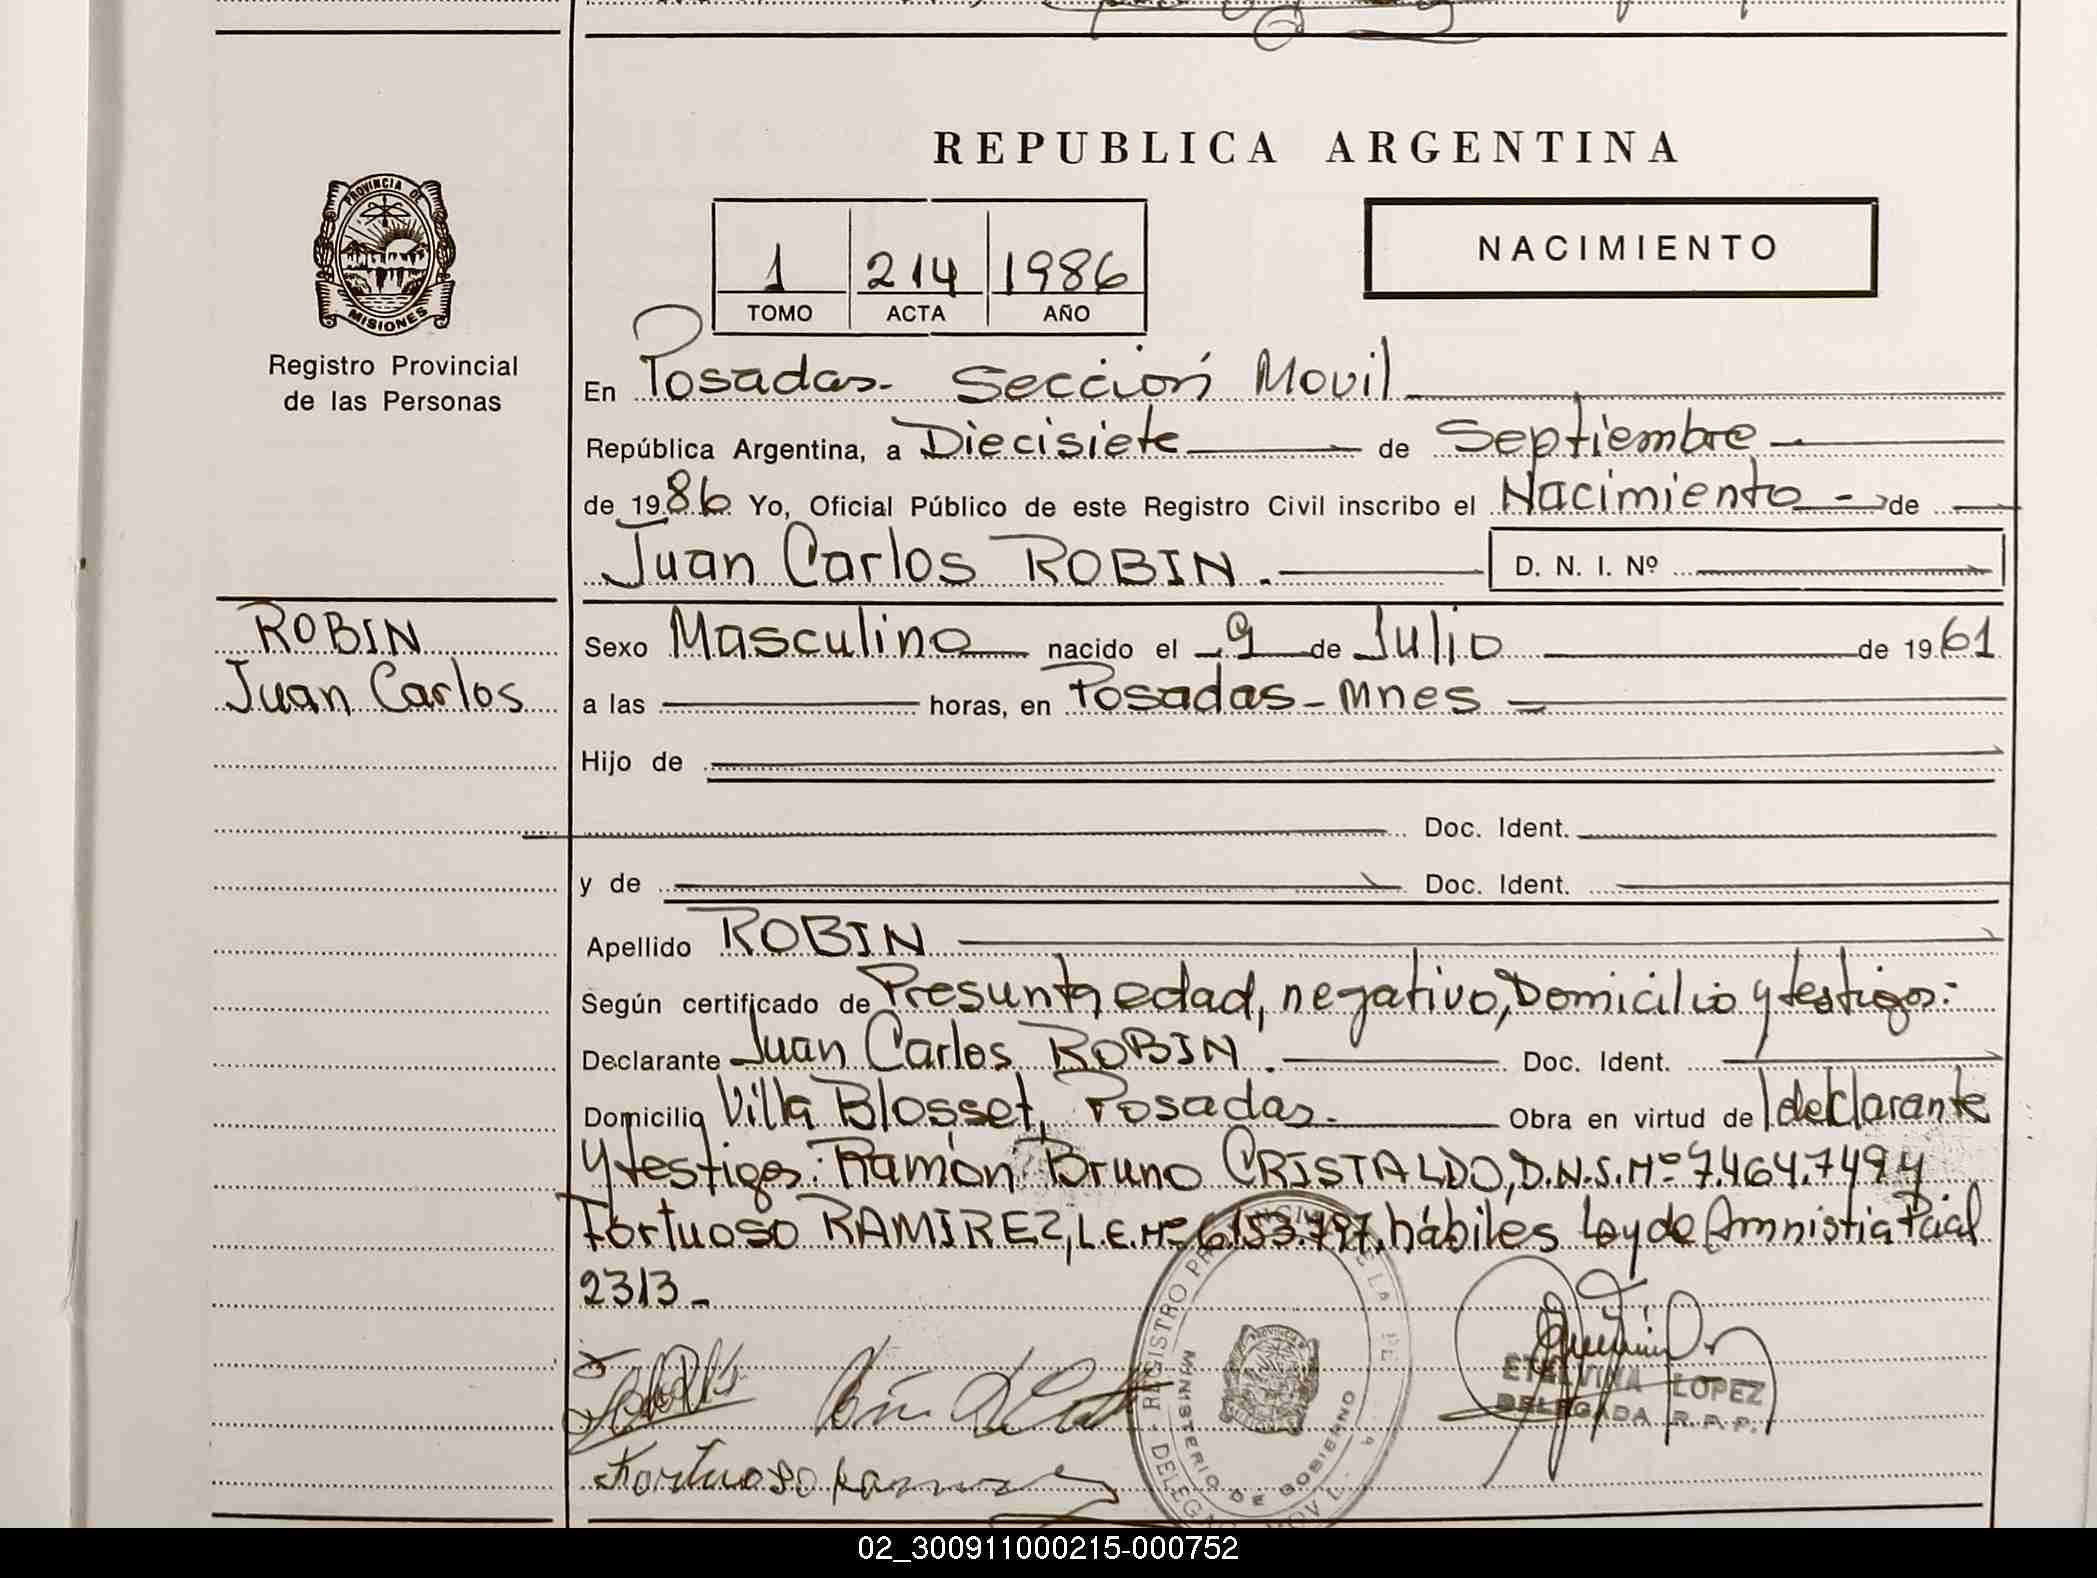 REPUBLICA ARGENTINA
PROVINCIA DE
MISIONES
Registro Provincial
de las Personas
NACIMIENTO
1 214 1986
TOMO ACTA AÑO
En Posadas - Sección Movil
República Argentina, a Diecisiete de Septiembre
de 1986 Yo, Oficial Público de este Registro Civil inscribo el Nacimiento - de
Juan Carlos ROBIN. D. N. I. Nº
ROBIN
Juan Carlos
Sexo Masculino nacido el 9 de Julio de 1961
a las horas, en Posadas - Mnes
Hijo de
Doc. Ident.
y de Doc. Ident.
Apellido ROBIN
Según certificado de Presunta edad, negativo, Domicilio y testigos:
Declarante Juan Carlos ROBIN. Doc. Ident.
Domicilio Villa Blosset, Posadas. Obra en virtud de l declarante
y testigos: Ramón Bruno CRISTALDO, D.N.I. Nº 7.464.749 y
Fortuoso RAMIREZ, L.E. Nº 6.153.797, hábiles Ley de Amnistia Pcial
2313 -
Fortuoso Ramirez
REGISTRO DE LA
MINISTERIO DE GOBIERNO
ETELVINA LOPEZ
DELEGADA R.P.P.
02_300911000215-000752